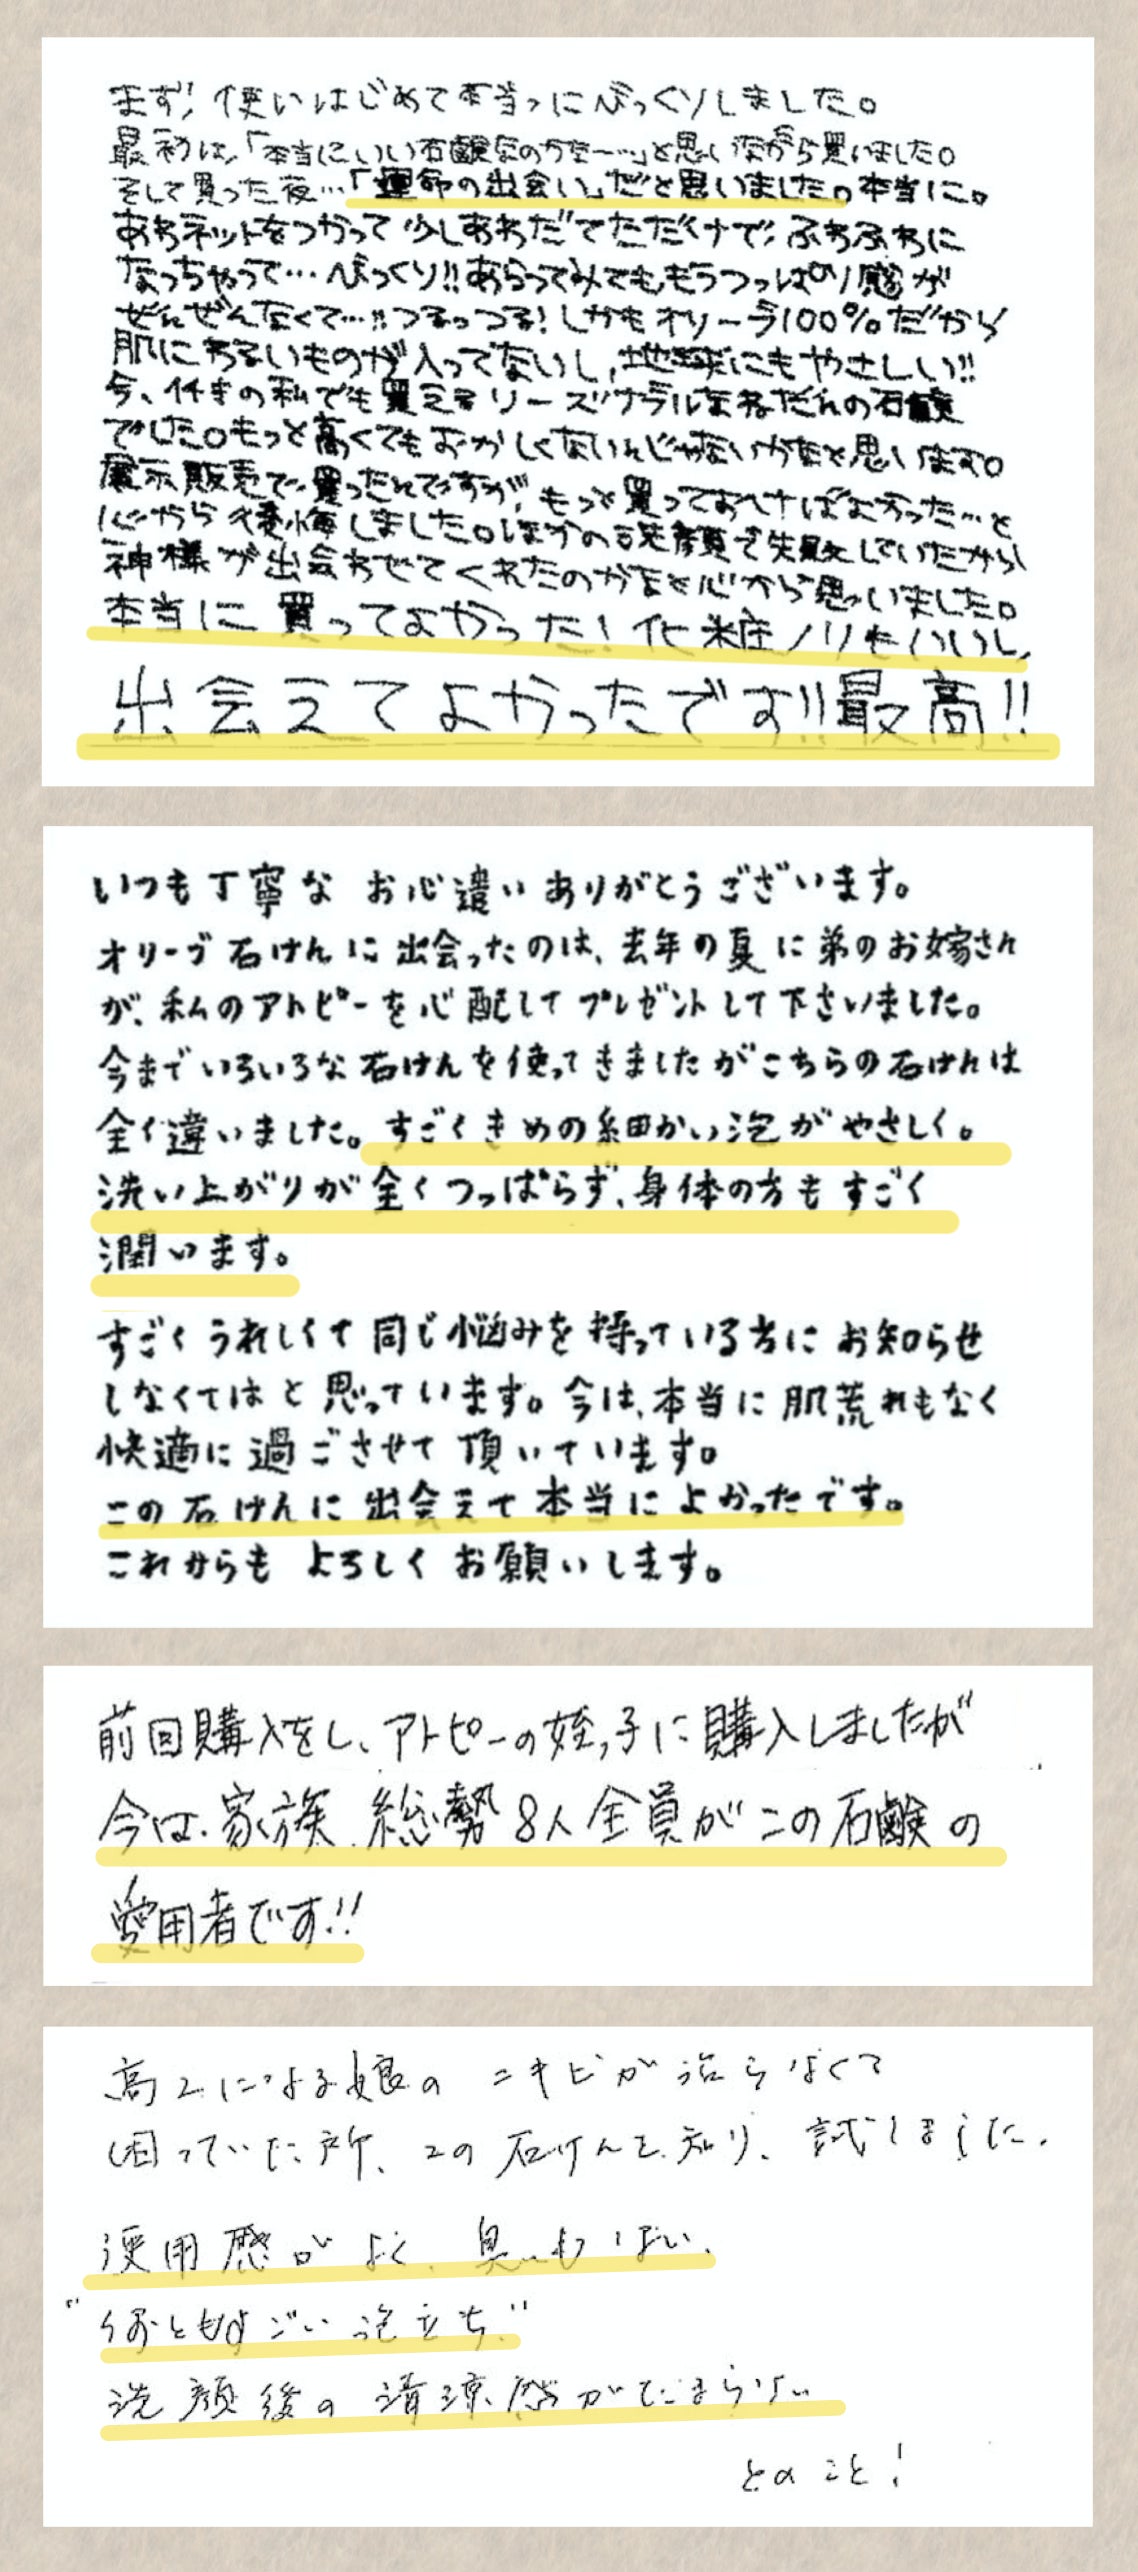 まず、使いはじめて本当っにびっくりしました。
最初は、「本当にいい石鹸なのかな〜…」と思いながら買いました。
そして買った夜…「運命の出会い」だと思いました。本当に。
あわネットをつかって少しあわだてただけで、ふわふわに
なっちゃって…びっくり!!あらってみてももうつっぱり感が
ぜんぜんなくて…!!つるっつる!しかもオリーブ100%だから
肌にわるいものが入ってないし、地球にもやさしい!!
今、付きの私でも買えるリーズナブルなねだんの石鹸
でした。もっと高くてもおかしくないんじゃないかなと思います。
展示販売で買ったんですが、もっと買っておけばよかった…と
心から後悔しました。ほかの洗顔で失敗していたから
神様が出会わせてくれたのかなと心から思いました。
本当に買ってよかった!化粧ノリもいいし、
出会えてよかったです!!最高!!
いつも丁寧な お心遣いありがとうございます。
オリーブ石けんに出会ったのは、去年の夏に弟のお嫁さん
が、私のアトピーを心配してプレゼントして下さいました。
今までいろいろな石けんを使ってきましたがこちらの石けんは
全く違いました。すごくきめの細かい泡がやさしく。
洗い上がりが全くつっぱらず、身体の方もすごく
潤います。
すごくうれしくて同じ悩みを持っている方にお知らせ
しなくてはと思っています。今は、本当に肌荒れもなく
快適に過ごさせて頂いています。
この石けんに出会えて本当によかったです。
これからもよろしくお願いします。
前回購入をし、アトピーの姪っ子に購入しましたが
今は、家族総勢8人全員がこの石鹸の
愛用者です!!
高2になる娘のニキビが治らなくて
困っていた所、この石けんを知り、試しました。
使用感がよく、臭いもない、
"何ともすごい泡立ち、"
洗顔後の清涼感がたまらない
とのこと!